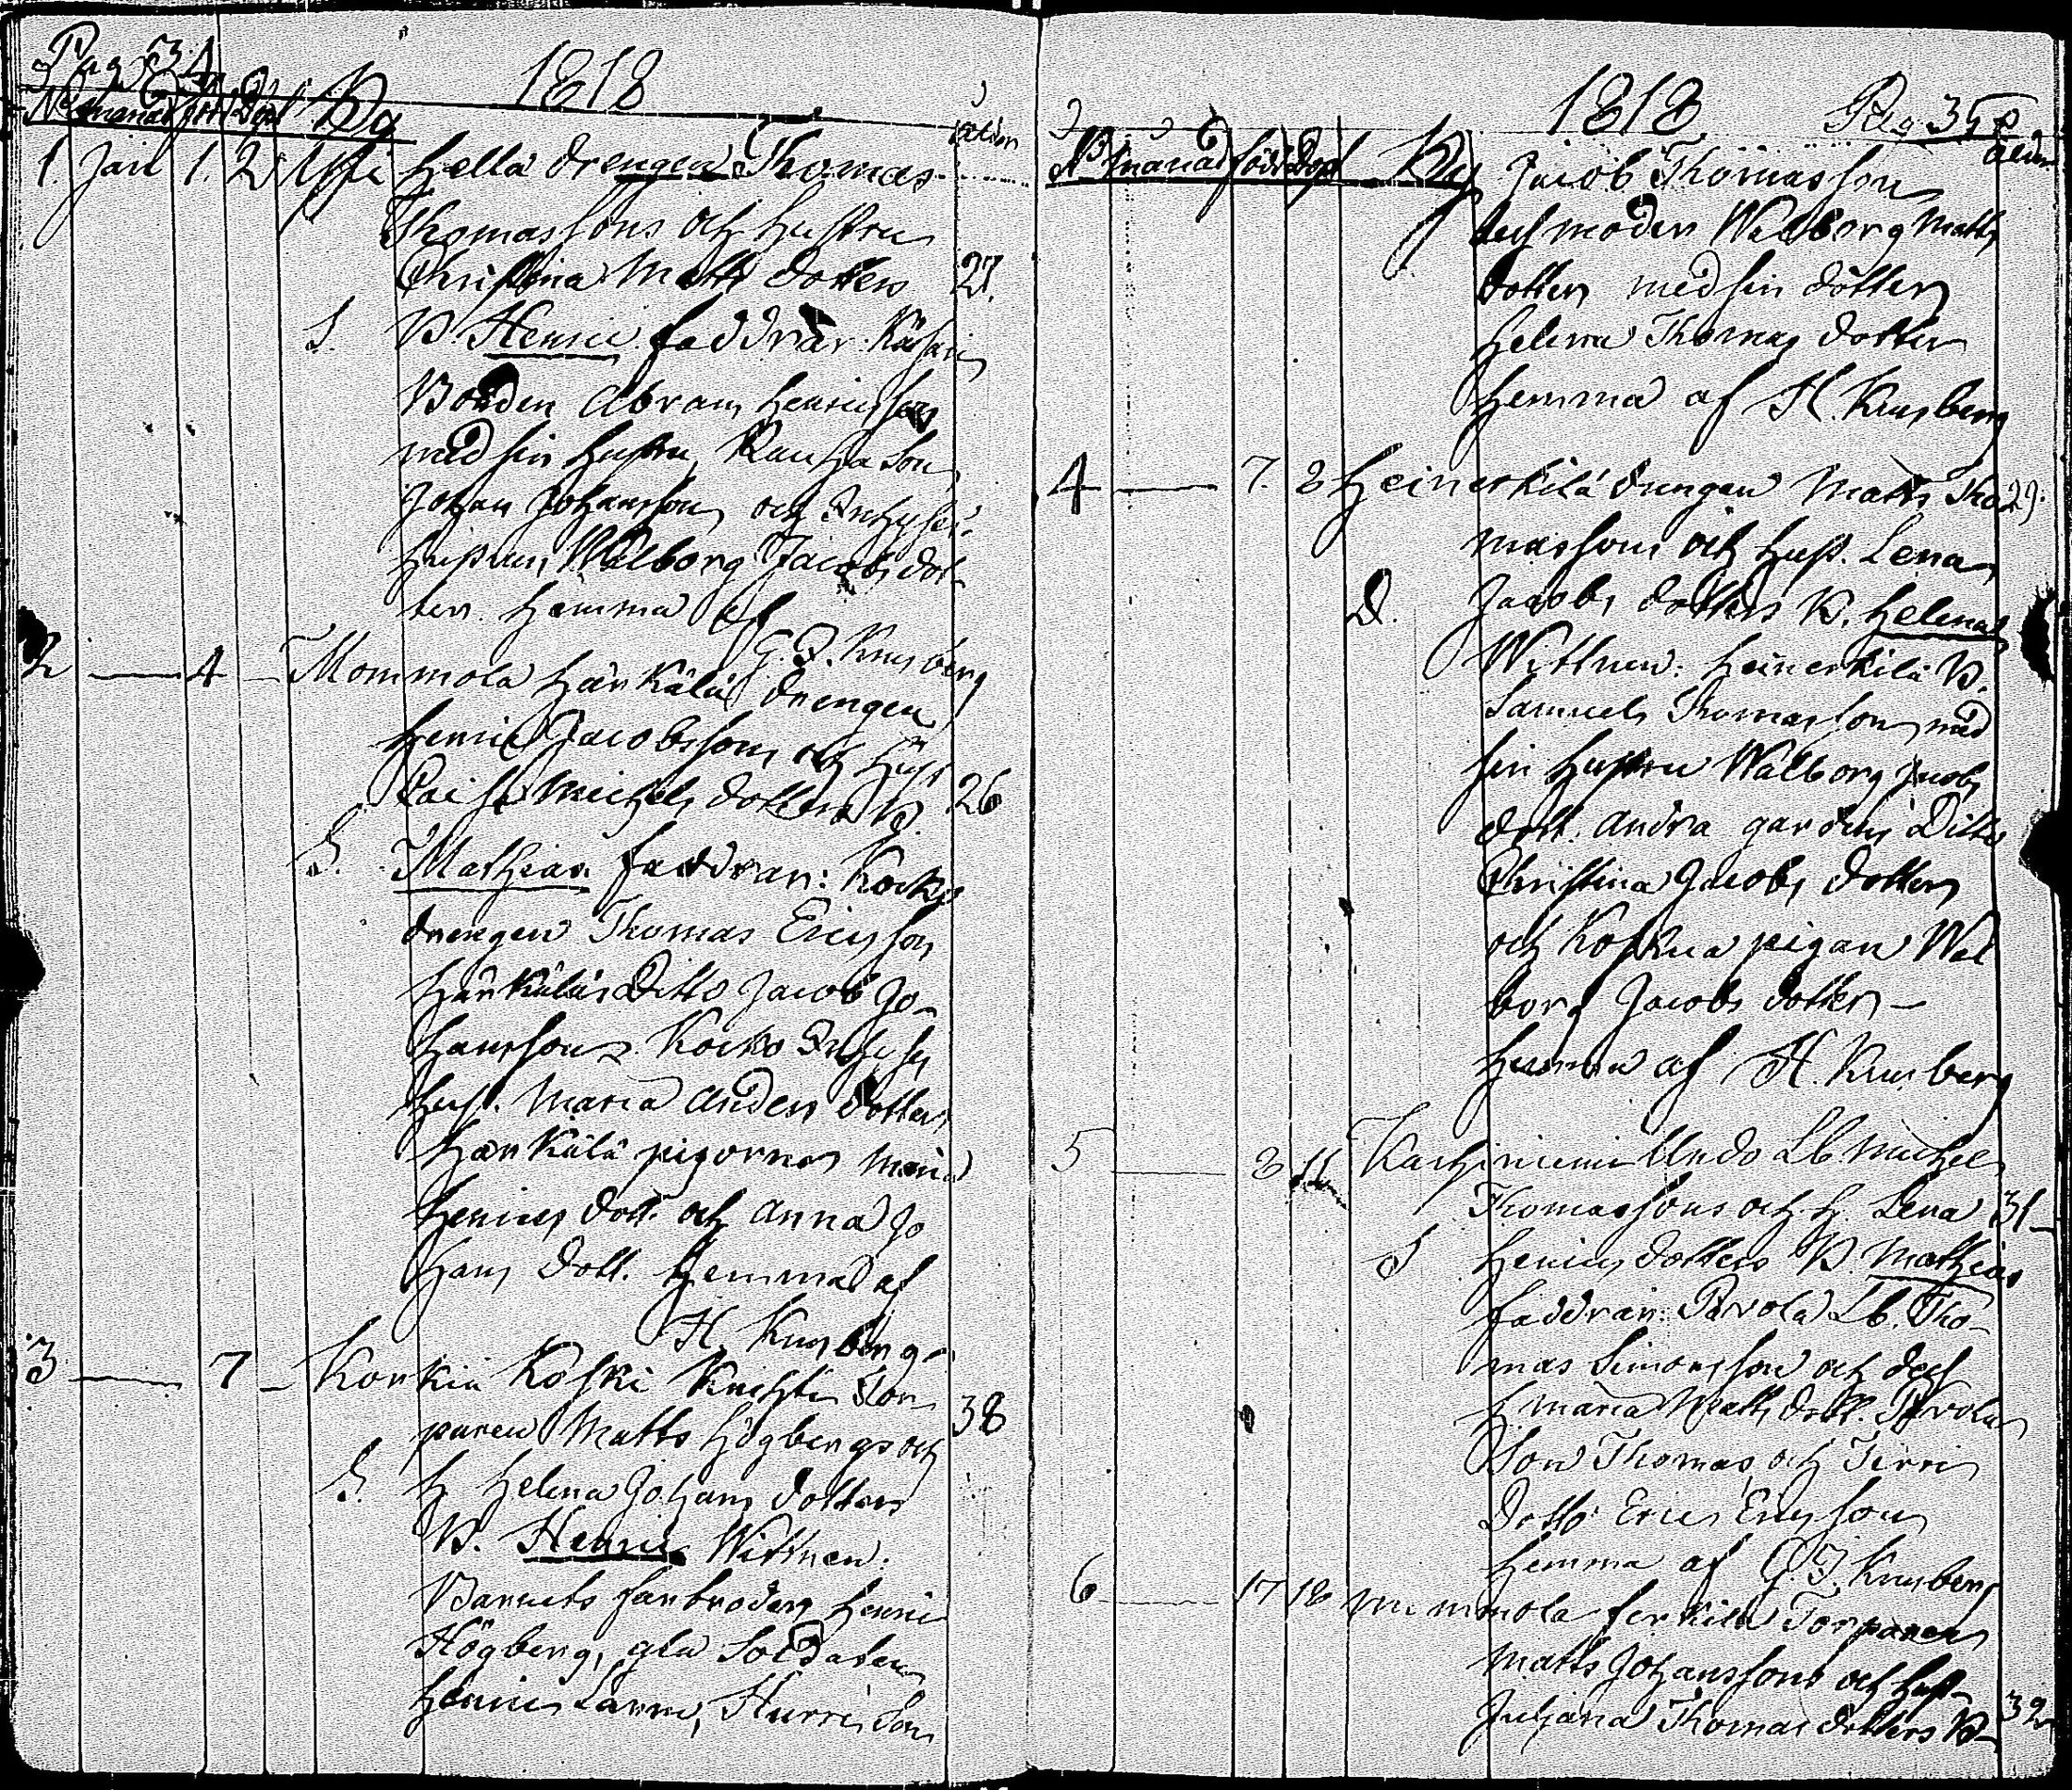 Pag 34
1818
N månad född Döpt By
ålder
1. Jan 1. 2 Uffi Hella drengen Thomas
Thomassons och hustru
Christina Matts dotters 27.
S. B. Henric faddrar:
Bonden Abram Henricsson
med sin hustru, son
Johan Johansson och Inhyses
hustrun Walborg Jacobs dot-
ter. hemma af
G. J. Krusberg
2 4 Mommola Härkälä drengen
Henric Jacobssons och hust
Caisa Michels dotters B. 26
S. Mathias faddrar: Kocko
drengen Thomas Ericsson
Härkälä Ditto Jacob Jo-
hansson Kocko Inhyses
hust. Maria Anders dotter,
Härkälä pigorna Maria
Henrics dott. och Anna Jo
hans dott. hemma af
H. Krusberg
3 7 Konkin Koski Tor
paren Matts Högbergs och 38
S. H Helena Johans dotters
B. Henric Wittnen:
Barnets farbroder Henric
Högberg, gla Soldaten
Henric Son
1818.
Pag 35
ålder
N månad född Döpt By
Jacob Thomasson
dess moder Walborg Matts
dotter med sin dotter
Helena Thomas dotter
hemma af H. Krusberg
4 7. 8 Heinerkilä drengen Matts Tho 29.
massons och hust. Lena
D. Jacobs dotters B. Helena
Wittnen: heinerkilä B.
Samuel Thomasson med
sin hustru Walborg Jacobs
dott. andra gardens Ditto
Christina Jacobs dotter
och pigan Wal
borg Jacobs dotter –
hemma af H. Krusberg
5 8 11 Karhiniemi Undo Lb Michel
Thomassons och h. Lena 31
S Henrics dotters B. Mathias
faddrar: Pärola Lb. Tho-
mas Simonsson och dess
h Maria Matts dott. Pärola
Son Thomas och Jerri
Ditto Eric Ericsson
hemma af G. J. Krusberg
6 17 18 Mommola Torparen
Matts Johanssons och hust
Juliana Thomas dotters B 32